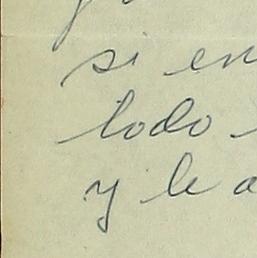 si en
todo
y le a